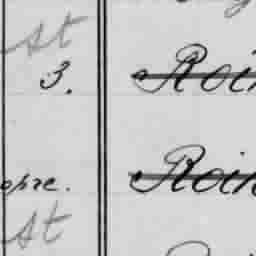 st
3. Roi
opre. Rein
st